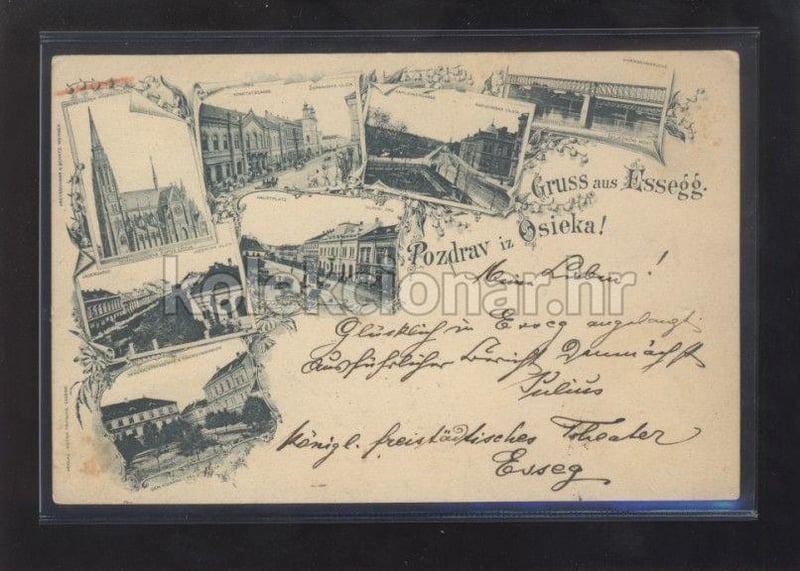 KOMITATSGASSE
HAUPTPLATZ
Gruss aus Essegg.
Pozdrav iz Osieka!
kolekcionar.hr
Meine Lieben!
Glücklich in Esseg angelangt
ausführlicher Bericht Demnächst
Julius
königl. freistädtisches Theater
Esseg